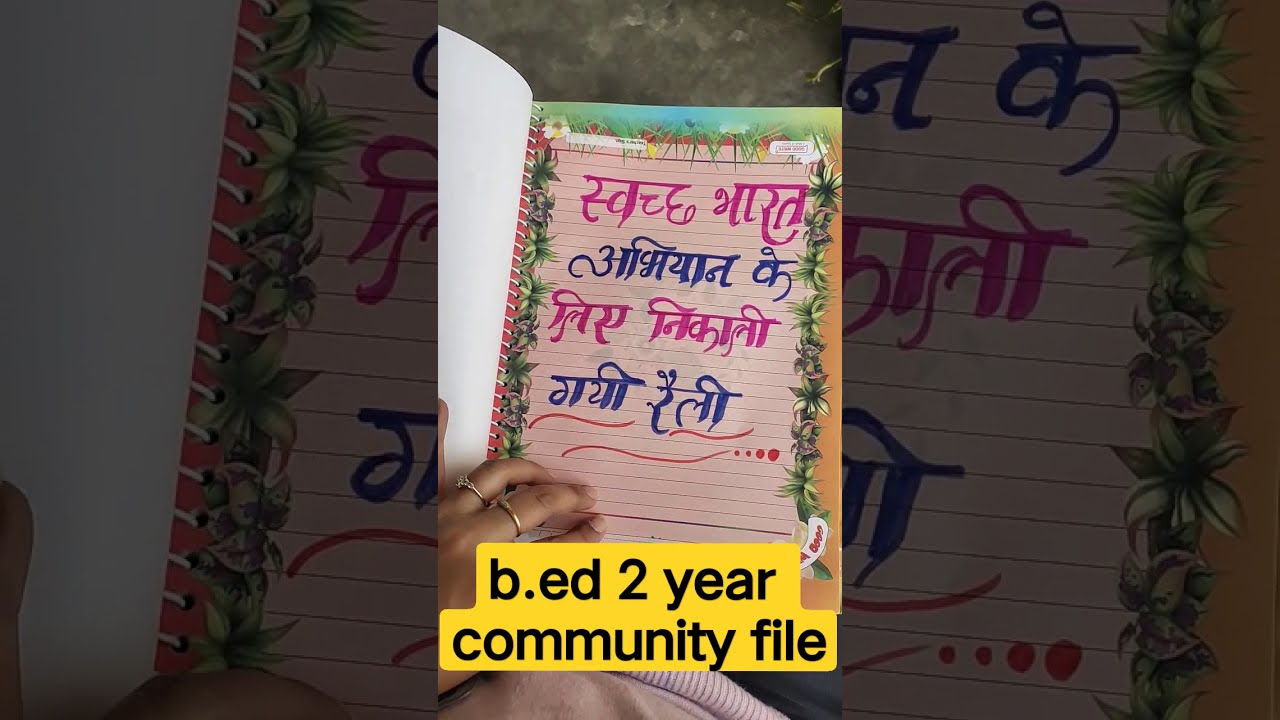 स्वच्छ भारत
अभियान के
लिए निकाली
गयी रैली
b.ed 2 year
community file